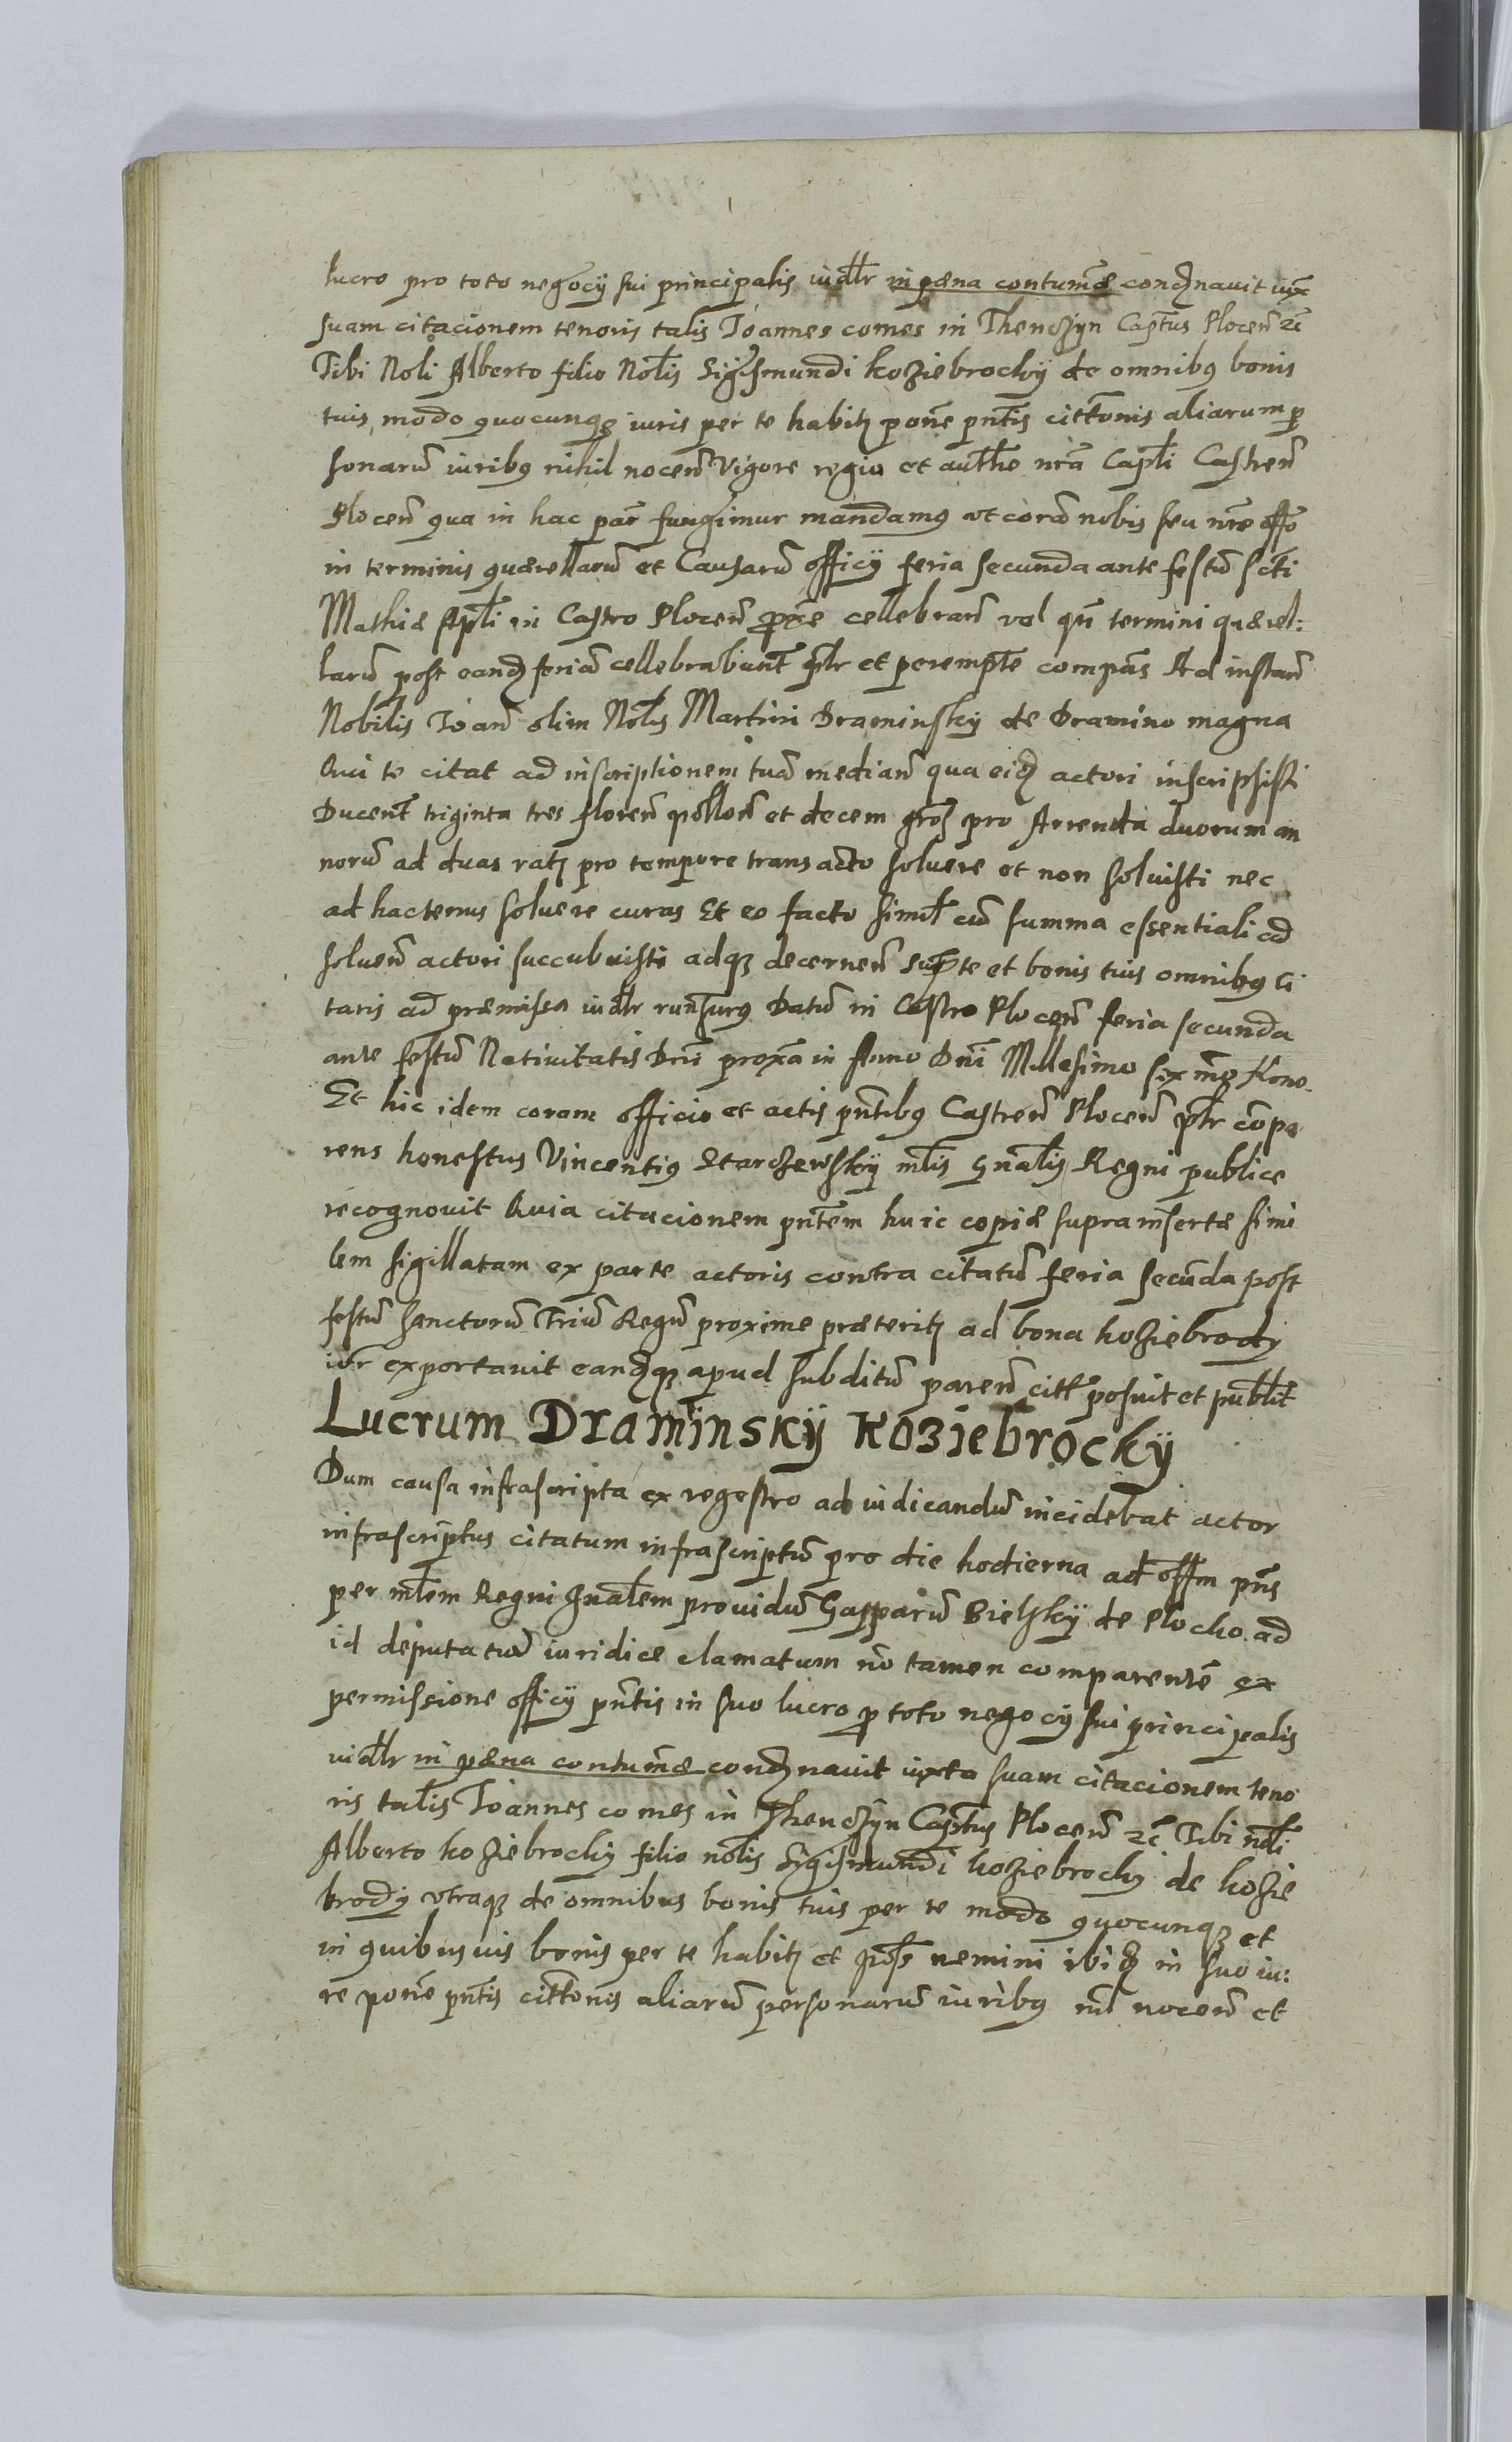 lucro pro toto negocÿ sui principalis iudlr in pæna contumæ condnauit iux
suam citacionem tenoris talis Joannes comes in Thenczyn Captus Plocen̄ zc̄
Tibi Noli Alberto filio Nolis Sigismundi koziebroczkÿ de omnibus bonis
tuis modo quocunque iuris per te habitis pone pn̄tis cittonis aliarum per
sonarū iuribus nihil nocen̄ Vigore regia et autthe nr̄a Captli Castren̄
Plocen̄ qua in hac par̄ fungimur mandamus vt corā nobis seu nr̄o offo
in terminis quærellarū et Causarū officÿ feria secunda ante festū scti
Mathiæ Apli in Castro Plocen̄ prox̄e cellebran̄ vel qn̄ termini quærel:
larū post eand feriā cellebrabunt̄ pltr et perempte compās Ad instan̄
Nobilis Joan̄ olim Nolis Martini Draminskÿ de Dramino magna
Qui te citat ad inscriptionem tuā median̄ qua eid actori inscripsisti
Ducent̄ triginta tres floren̄ pollon̄ et decem gros pro Arrenda duorum an
norū ad duas ratis pro tempore transacto soluere et non soluisti nec
ad hactenus soluere curas Et eo facto simul cū summa essentiali ad
soluen̄ actori succubuisti adque decernen̄ supte et bonis tuis omnibus ci
taris ad præmissa iudlr runsurus Datū in Castro Plocen̄ feria secunda
ante festū Natiuitatis Dn̄i prox̄a in Anno Dn̄i Millesimo sexmo Nono.
Et hic idem coram officio et actis pn̄tibus Castren̄ Plocen̄ pltr compa
rens honestus Vincentius Starczewskÿ mlis gnalis Regni publice
recognouit Quia citacionem pn̄tem huic copiæ supra insertæ simi
lem sigillatam ex parte actoris contra citatū feria secūda post
festū sanctorū Triū Regū proxime præteritis ad bona koziebrodÿ
ibr exportauit eandque apud subditū paren̄ citt posuit et publit
Lucrum Draminskÿ Koziebrockÿ
Dum causa infrascripta ex regestro ad iudicandū incidebat actor
infrascriptus citatum infrascriptū pro die hodierna ad offm pn̄s
per mlem Regni gnalem prouidū Gasparū Bielskÿ de Plocko ad
id deputatū iuridice clamatum nō tamen comparentē ex
permissione officÿ pn̄tis in suo lucro pro toto negocÿ sui principalis
iudlr in pæna contumæ condnauit iuxta suam citacionem teno
ris talis Joannes comes in Thenczÿn Captus Plocen̄ zc̄ Tibi noli
Alberto koziebrockÿ filio nolis Sigismundi koziebrockÿ de kozie
brodÿ vtraque de omnibus bonis tuis per te modo quocunque et
in quibusuis bonis per te habitis et poss nemini ibid in suo iu:
re pone pn̄tis cittonis aliarū personarū iuribus nil nocen̄ et